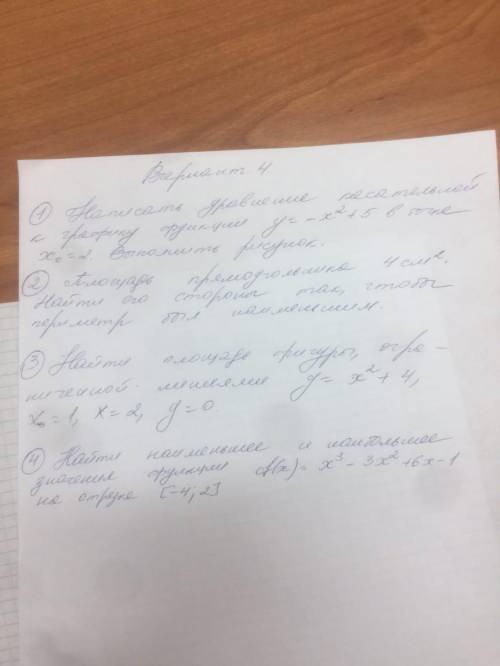 Вариант 4
① Написать уравнение касательной
к графику функции y = -x² + 5 в точке
x₀ = 2. Выполнить рисунок.
② Площадь прямоугольника 4 см².
Найти его стороны так, чтобы
периметр был наименьшим.
③ Найти площадь фигуры, огра-
ниченной линиями y = x² + 4,
x = 1, x = 2, y = 0
④ Найти наименьшее и наибольшее
значения функции f(x) = x³ - 3x² + 6x - 1
на отрезке [-4; 2]